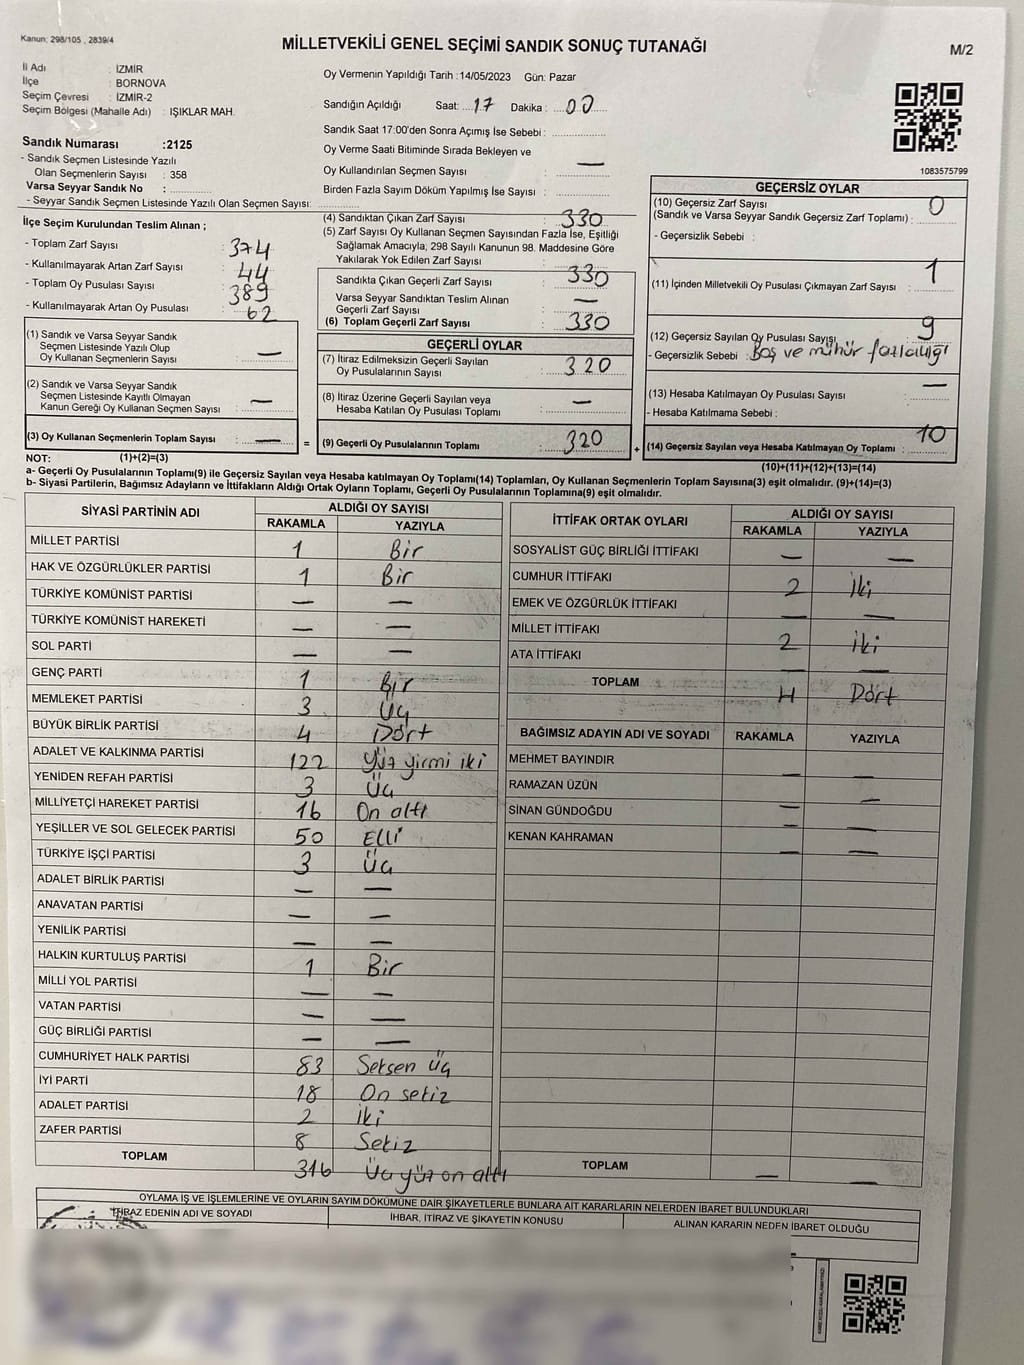 Kanun; 298/105 , 2839/4
MİLLETVEKİLİ GENEL SEÇİMİ SANDIK SONUÇ TUTANAĞI
M/2
İl Adı : İZMİR
İlçe : BORNOVA
Seçim Çevresi : İZMİR-2
Seçim Bölgesi (Mahalle Adı) : IŞIKLAR MAH.
Oy Vermenin Yapıldığı Tarih :14/05/2023 Gün: Pazar
Sandığın Açıldığı Saat: 17 Dakika : 00
Sandık Saat 17:00'den Sonra Açımış İse Sebebi :
Oy Verme Saati Bitiminde Sırada Bekleyen ve
Oy Kullandırılan Seçmen Sayısı : —
Birden Fazla Sayım Döküm Yapılmış İse Sayısı :
1083575799
Sandık Numarası :2125
- Sandık Seçmen Listesinde Yazılı
Olan Seçmenlerin Sayısı : 358
Varsa Seyyar Sandık No :
- Seyyar Sandık Seçmen Listesinde Yazılı Olan Seçmen Sayısı:
İlçe Seçim Kurulundan Teslim Alınan ;
- Toplam Zarf Sayısı : 374
- Kullanılmayarak Artan Zarf Sayısı : 44
- Toplam Oy Pusulası Sayısı : 389
- Kullanılmayarak Artan Oy Pusulası : 62
(1) Sandık ve Varsa Seyyar Sandık
Seçmen Listesinde Yazılı Olup
Oy Kullanan Seçmenlerin Sayısı : —
(2) Sandık ve Varsa Seyyar Sandık
Seçmen Listesinde Kayıtlı Olmayan
Kanun Gereği Oy Kullanan Seçmen Sayısı : —
(3) Oy Kullanan Seçmenlerin Toplam Sayısı : — =
(4) Sandıktan Çıkan Zarf Sayısı : 330
(5) Zarf Sayısı Oy Kullanan Seçmen Sayısından Fazla İse, Eşitliği
Sağlamak Amacıyla; 298 Sayılı Kanunun 98. Maddesine Göre
Yakılarak Yok Edilen Zarf Sayısı :
Sandıkta Çıkan Geçerli Zarf Sayısı : 330
Varsa Seyyar Sandıktan Teslim Alınan
Geçerli Zarf Sayısı : —
(6) Toplam Geçerli Zarf Sayısı : 330
GEÇERLİ OYLAR
(7) İtiraz Edilmeksizin Geçerli Sayılan
Oy Pusulalarının Sayısı : 320
(8) İtiraz Üzerine Geçerli Sayılan veya
Hesaba Katılan Oy Pusulası Toplamı : —
(9) Geçerli Oy Pusulalarının Toplamı : 320 +
GEÇERSİZ OYLAR
(10) Geçersiz Zarf Sayısı
(Sandık ve Varsa Seyyar Sandık Geçersiz Zarf Toplamı) : 0
- Geçersizlik Sebebi :
(11) İçinden Milletvekili Oy Pusulası Çıkmayan Zarf Sayısı : 1
(12) Geçersiz Sayılan Oy Pusulası Sayısı : 9
- Geçersizlik Sebebi : Boş ve mühür fazlalığı
(13) Hesaba Katılmayan Oy Pusulası Sayısı : —
- Hesaba Katılmama Sebebi :
(14) Geçersiz Sayılan veya Hesaba Katılmayan Oy Toplamı : 10
NOT: (1)+(2)=(3)
(10)+(11)+(12)+(13)=(14)
a- Geçerli Oy Pusulalarının Toplamı(9) ile Geçersiz Sayılan veya Hesaba katılmayan Oy Toplamı(14) Toplamları, Oy Kullanan Seçmenlerin Toplam Sayısına(3) eşit olmalıdır. (9)+(14)=(3)
b- Siyasi Partilerin, Bağımsız Adayların ve İttifakların Aldığı Ortak Oyların Toplamı, Geçerli Oy Pusulalarının Toplamına(9) eşit olmalıdır.
SİYASİ PARTİNİN ADI ALDIĞI OY SAYISI
RAKAMLA YAZIYLA
MİLLET PARTİSİ 1 Bir
HAK VE ÖZGÜRLÜKLER PARTİSİ 1 Bir
TÜRKİYE KOMÜNİST PARTİSİ — —
TÜRKİYE KOMÜNİST HAREKETİ — —
SOL PARTİ — —
GENÇ PARTİ 1 Bir
MEMLEKET PARTİSİ 3 Üç
BÜYÜK BİRLİK PARTİSİ 4 Dört
ADALET VE KALKINMA PARTİSİ 122 Yüz yirmi iki
YENİDEN REFAH PARTİSİ 3 Üç
MİLLİYETÇİ HAREKET PARTİSİ 16 On altı
YEŞİLLER VE SOL GELECEK PARTİSİ 50 Elli
TÜRKİYE İŞÇİ PARTİSİ 3 Üç
ADALET BİRLİK PARTİSİ — —
ANAVATAN PARTİSİ — —
YENİLİK PARTİSİ — —
HALKIN KURTULUŞ PARTİSİ 1 Bir
MİLLİ YOL PARTİSİ — —
VATAN PARTİSİ — —
GÜÇ BİRLİĞİ PARTİSİ — —
CUMHURİYET HALK PARTİSİ 83 Seksen üç
İYİ PARTİ 18 On sekiz
ADALET PARTİSİ 2 İki
ZAFER PARTİSİ 8 Sekiz
TOPLAM 316 Üç yüz on altı
İTTİFAK ORTAK OYLARI ALDIĞI OY SAYISI
RAKAMLA YAZIYLA
SOSYALİST GÜÇ BİRLİĞİ İTTİFAKI — —
CUMHUR İTTİFAKI 2 İki
EMEK VE ÖZGÜRLÜK İTTİFAKI — —
MİLLET İTTİFAKI 2 İki
ATA İTTİFAKI — —
TOPLAM 4 Dört
BAĞIMSIZ ADAYIN ADI VE SOYADI RAKAMLA YAZIYLA
MEHMET BAYINDIR — —
RAMAZAN ÜZÜN — —
SİNAN GÜNDOĞDU — —
KENAN KAHRAMAN — —
TOPLAM — —
OYLAMA İŞ VE İŞLEMLERİNE VE OYLARIN SAYIM DÖKÜMÜNE DAİR ŞİKAYETLERLE BUNLARA AİT KARARLARIN NELERDEN İBARET BULUNDUKLARI
İTİRAZ EDENİN ADI VE SOYADI İHBAR, İTİRAZ VE ŞİKAYETİN KONUSU ALINAN KARARIN NEDEN İBARET OLDUĞU